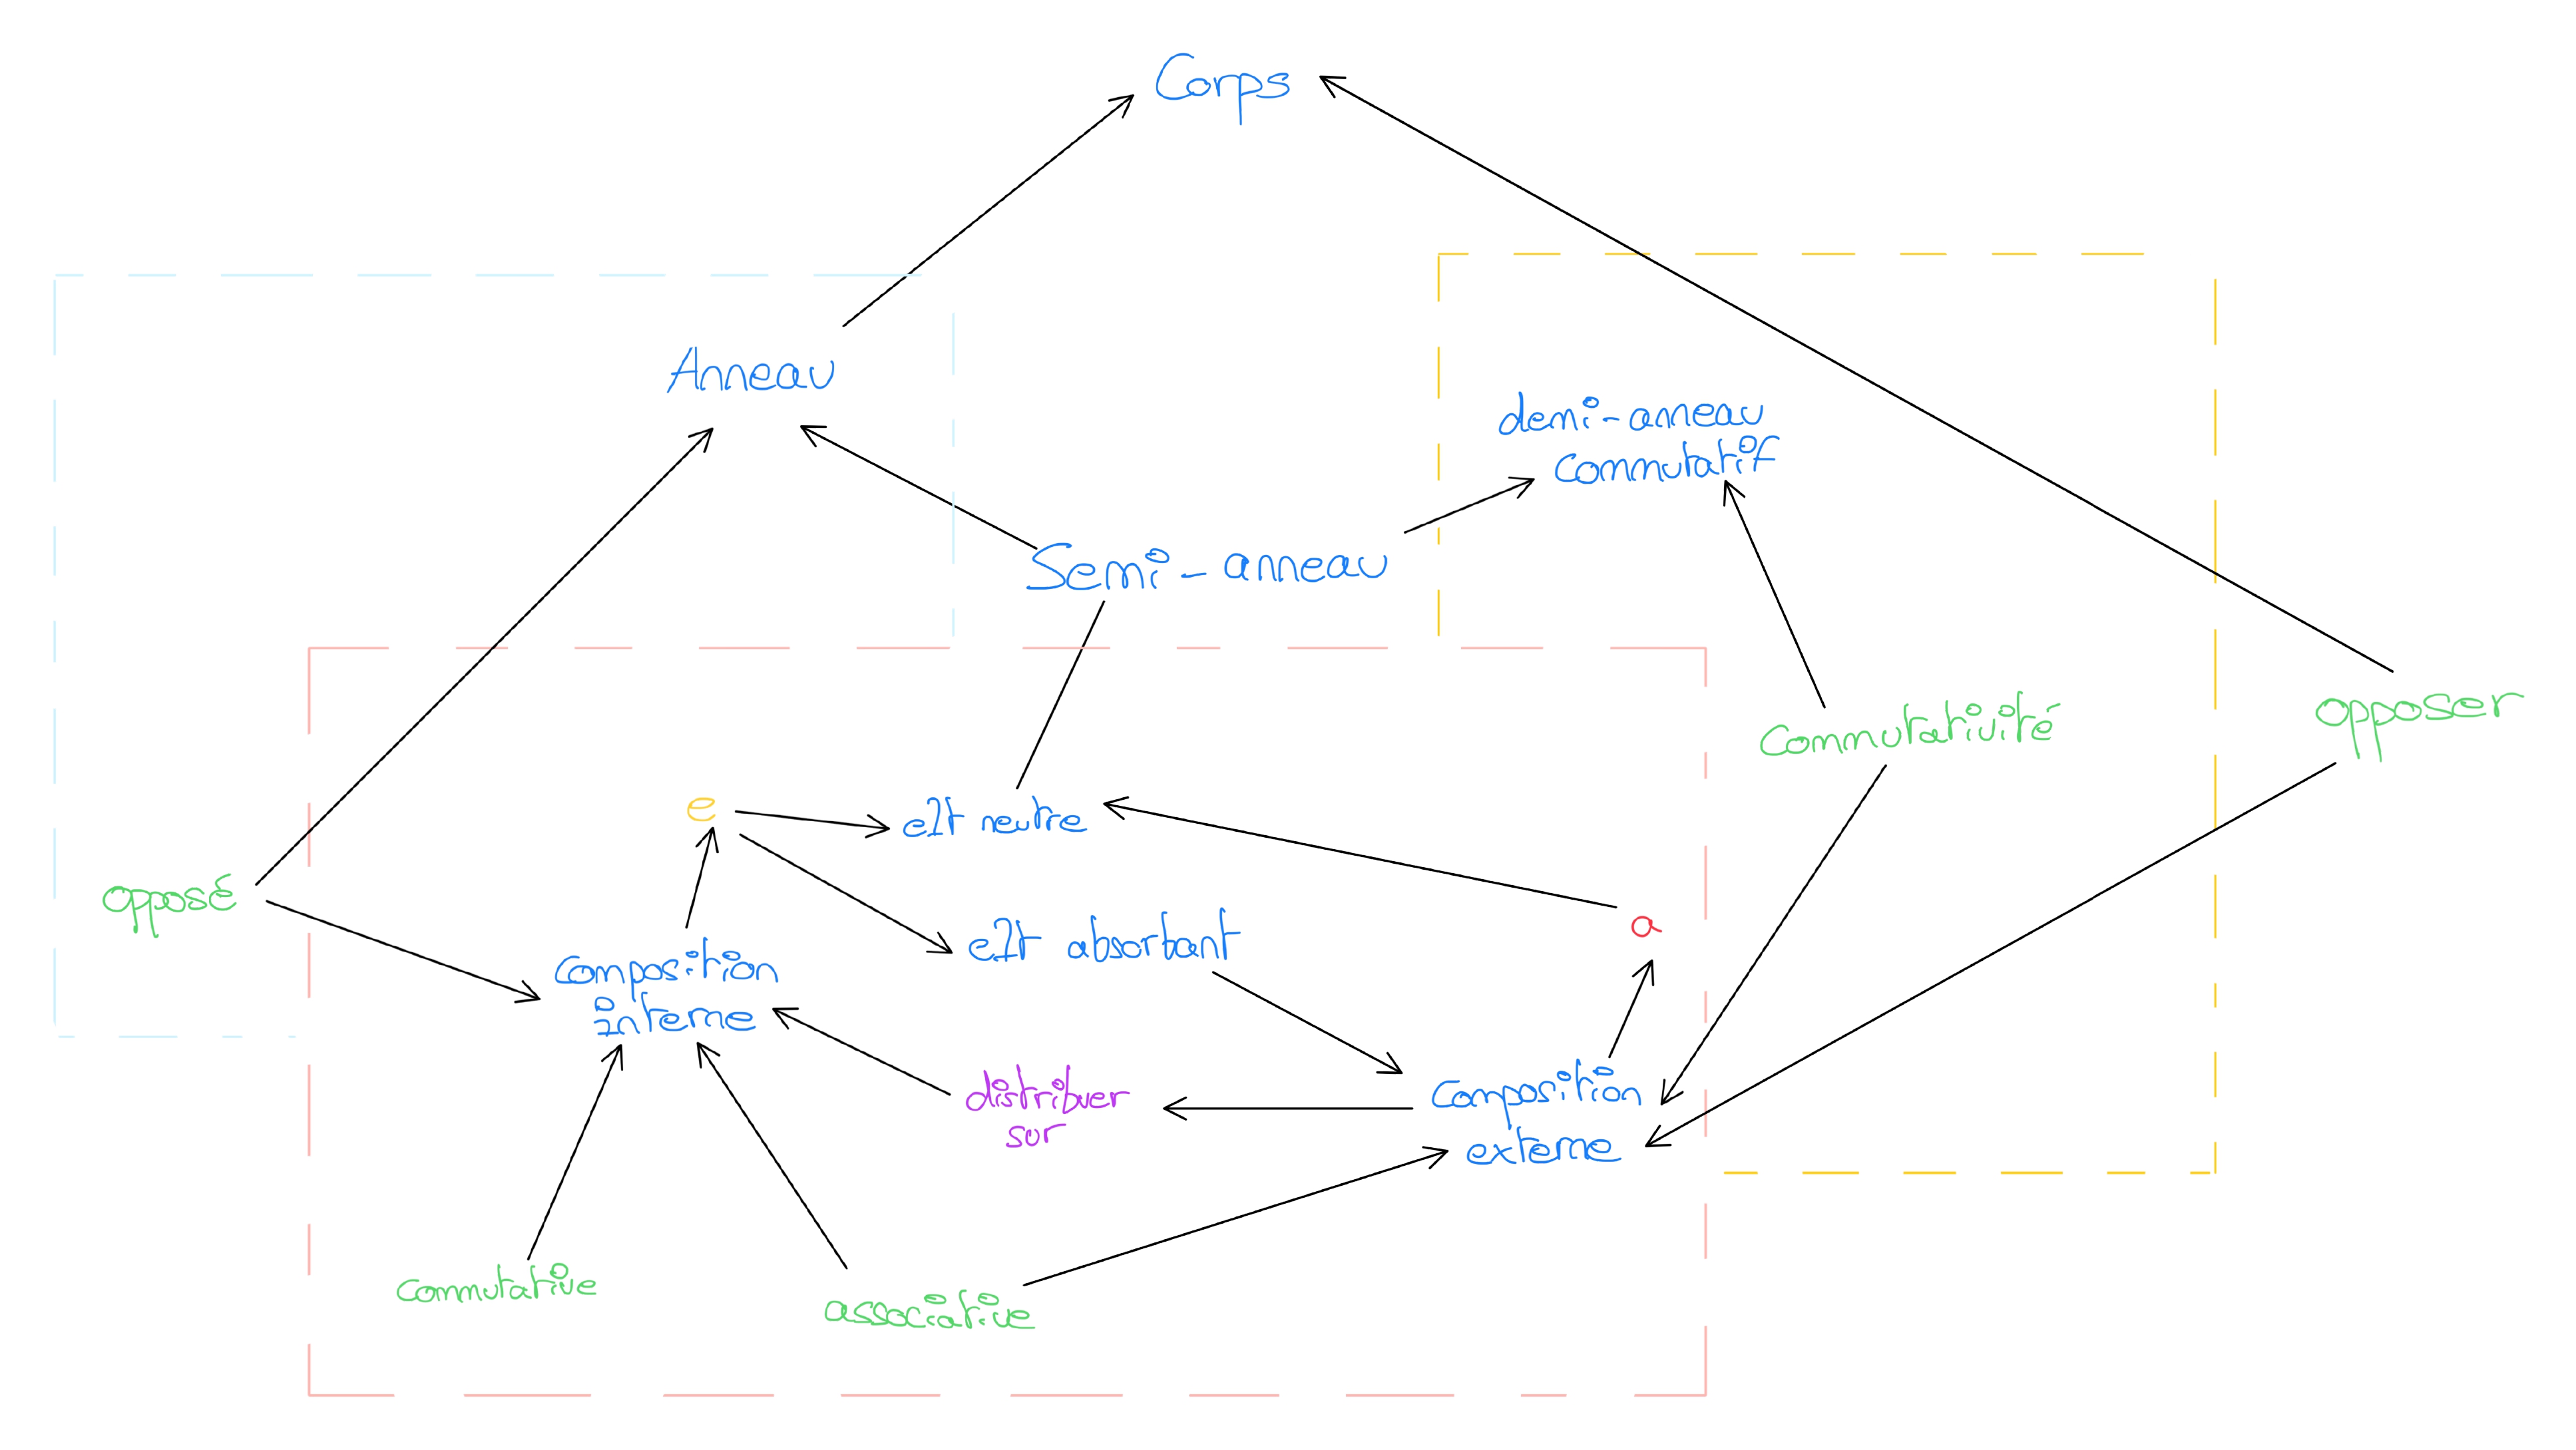 Corps
Anneau
demi-anneau
commutatif
Semi-anneau
Commutativité
opposer
e
elt neutre
opposé
a
elt absorbant
Composition
interne
distribuer
sur
Composition
externe
Commutative
associative